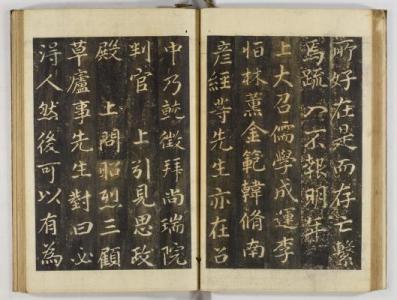 所好在是而存亡繫
焉疏入不報明年
上大召儒學成運李
恒林薰金範韓脩南
彦經等先生亦在召
中乃就徵拜尚瑞院
判官 上引見思政
殿 上問昭烈三顧
草廬事先生對曰必
得人然後可以有為